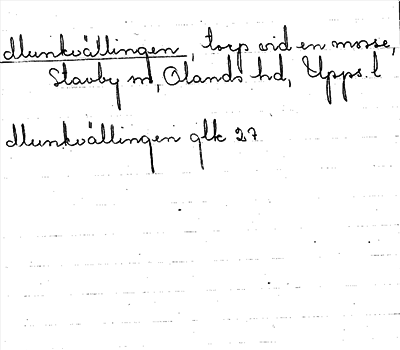 Munkvällingen, torp vid en mosse,
Stavby sn, Olands hd, Upps. l
Munkvällingen glk 27